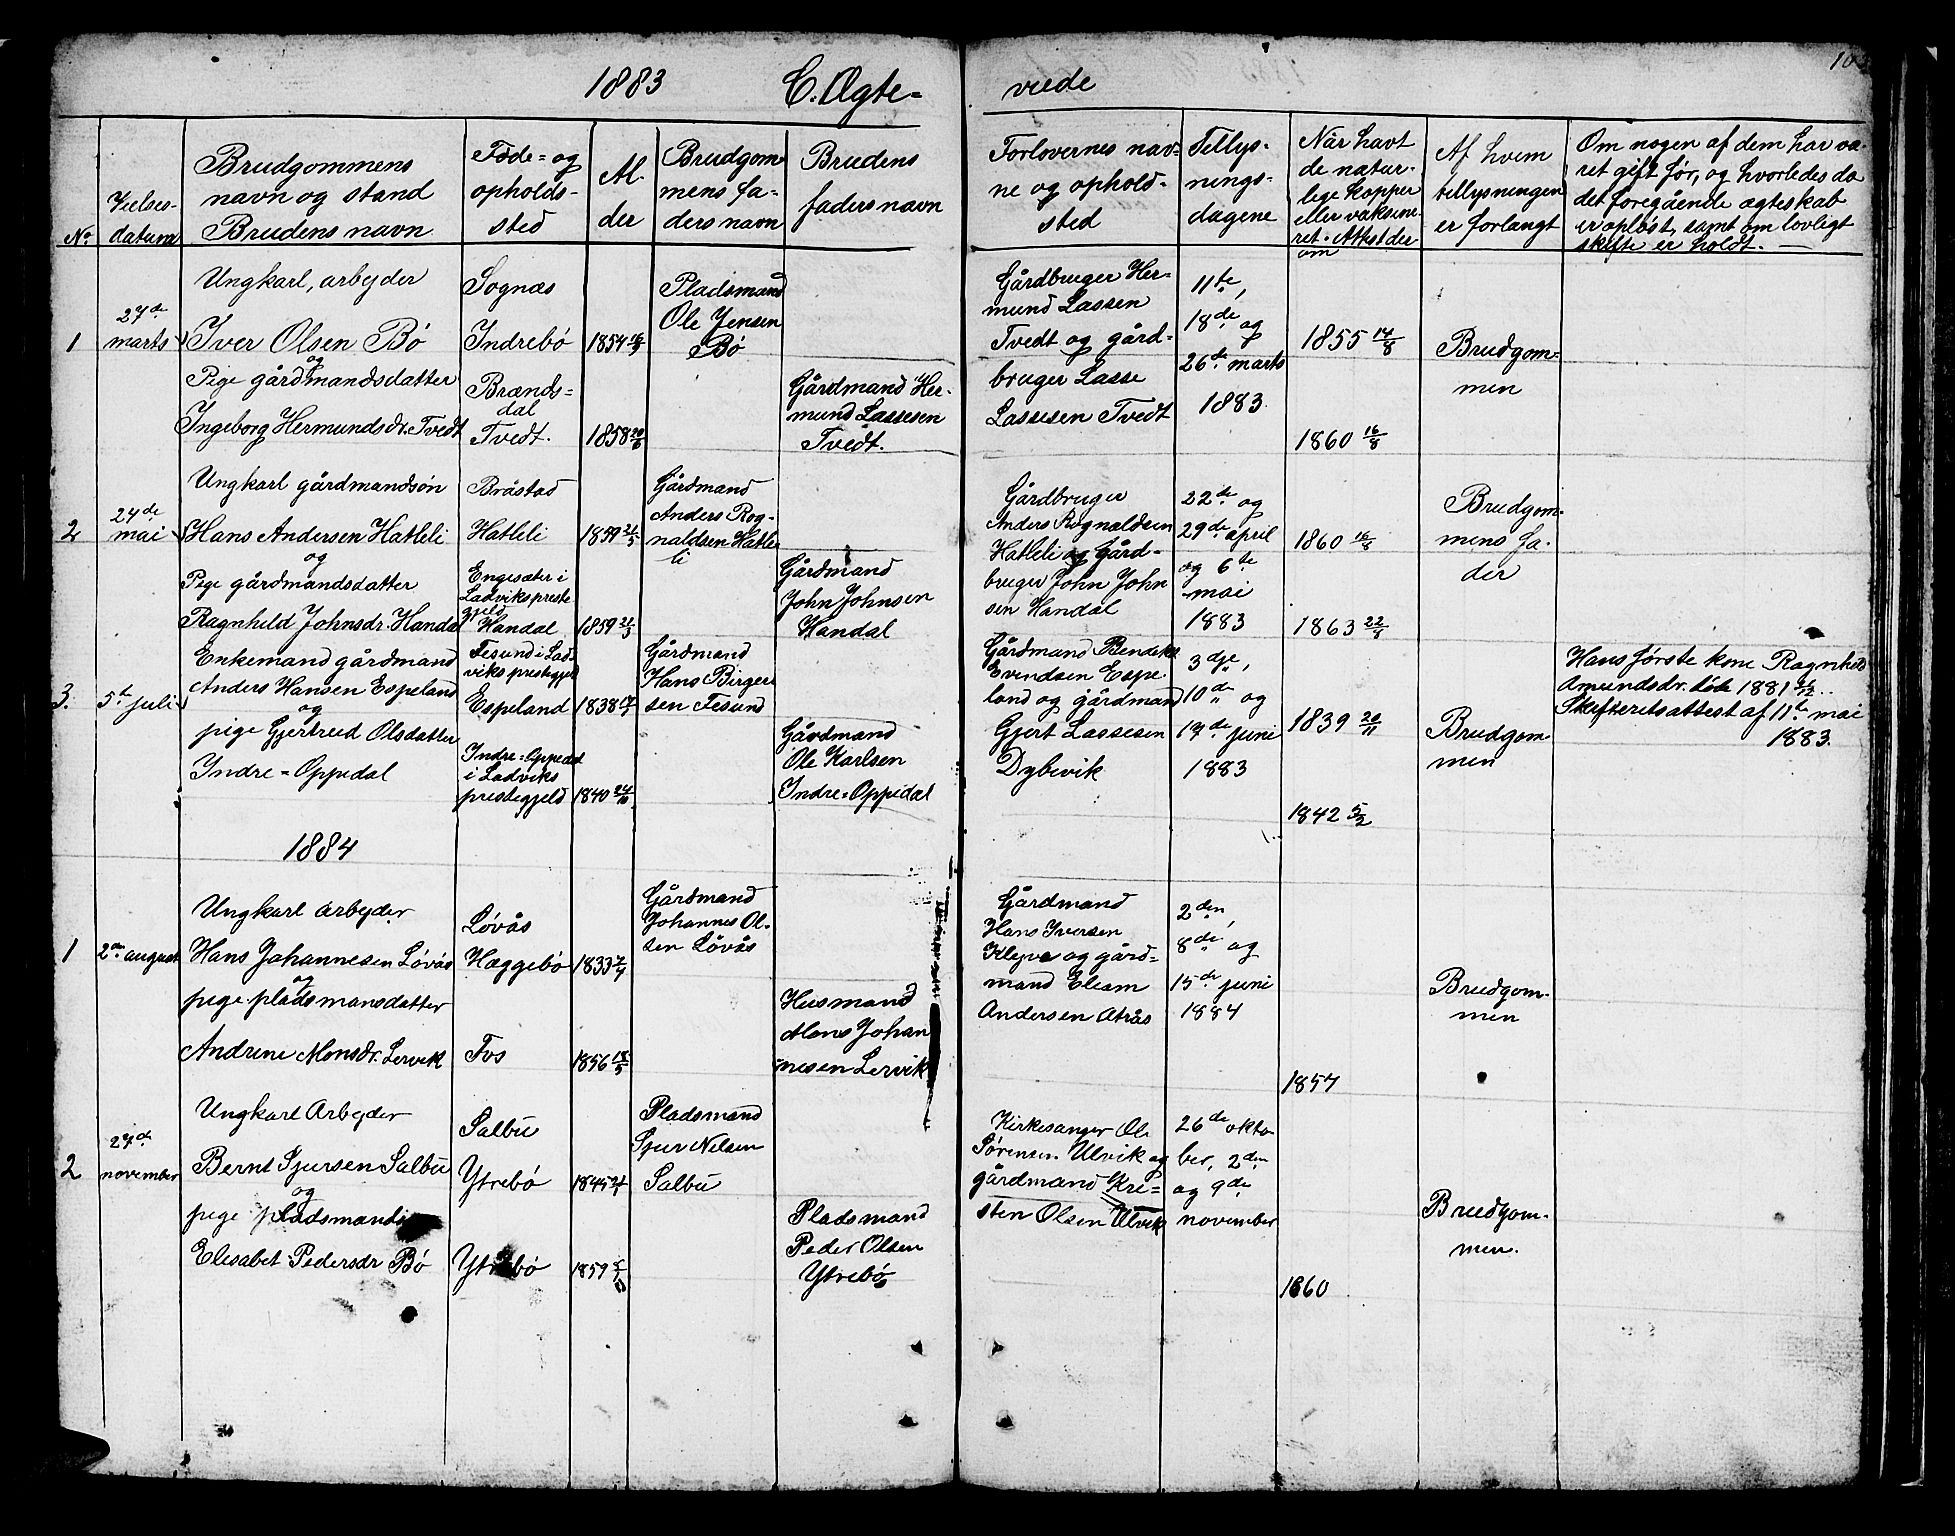 103
1883 C. Ægte= viede
No.
Vielses-
datum
Brudgommens
navn og stand
Brudens navn
Føde= og
opholds-
sted
Al-
der
Brudgom
mens fa-
ders navn
Brudens
faders navn
Forlovernes nav-
ne og ophold-
sted
Tillys-
nings-
dagene
Når havt
de natur-
lige kopper
eller vaksine-
ret. Attest der
om
Af hvem
tillysningen
er forlangt
Om nogen af dem har væ-
ret gift før, og hvorledes da
det foregående ægteskab
er opløst, samt om lovligt
skifte er holdt.
1
27de
marts
Ungkarl, arbejder
Iver Olsen Bø
og
Pige gårdmandsdatter
Ingeborg Hermundsdr. Tvedt
Sognæs
Indrebø
Brænds=
dal
Tvedt.
1854
1858
Pladsmand
Ole Jensen
Bø
Gårdmand Her-
mund Lassesen
Tvedt.
Gårdbruger Her-
mund Lassen
Tvedt og gård-
bruger Lasse
Lassesen Tvedt
11te,
18de og
26de marts
1883.
1855 14/8
1860 16/8
Brudgom=
men
2
24de
mai
Ungkarl gårdmandsøn
Hans Andersen Hatleli
og
Pige gårdmandsdatter
Ragnhild Johnsdr. Handal
Bråstad
Hatleli
Engesæter i
Ladviks preste
gjeld
Handal
1859 21/5
1859 21/3
Gårdmand
Anders Rog-
naldsen Hatle
li
Gårdmand
John Johnsen
Handal
Gårdbruger
Anders Rognaldsen
Hatleli og Gård-
bruger John John
sen Handal
22de og
29de april
og 6te
mai
1883
1860 16/8
1863
Brudgom-
mens fa-
der
3.
5te juli
Enkemand gårdmand
Anders Hansen Espeland
og
pige Gjertrud Olsdatter
Indre=Oppedal
Tesund i Lad-
viks prestegjeld
Espeland
Indre=Oppedal
i Ladviks
prestegjeld
1838
1840 24/10
Gårdmand
Hans Birger
sen Tesund
Gårdmand
Ole Karlsen
Indre=Oppedal
Gårdmand Bendik
Evindsen Espe
land og gårdmand
Gjert Lassesen
Dybevik
3dje,
10de og
17de juni
1883
1839 20/11
1842 5/2
Brudgom-
men
Hans første kone Ragnhild
Amundsdr. døde 1881
Skifteretsattest af 11te mai
1883.
1884
1
2den august
Ungkarl arbejder
Hans Johannesen Løvås
og
pige pladsmansdatter
Andrine Monsdr. Lervik
Løvås
Hæggebø
Fos
1833
1856 18/5
Gårdmand
Johannes Ol-
sen Løvås
Husmand
Mons Johan
nesen Lervik
Gårdmand
Hans Iversen
Kleyve og gård=
mand Eliam
Andersen Atrås
2den,
8de og
15de juni
1884
1857
Brudgom-
men
2
27de
november
Ungkarl Arbejder
Bernt Sjursen Salbu
og
pige pladsmands
Elisabet Pedersdr Bø
Salbu
Ytrebø
Ytrebø
1845
1859
Pladsmand
Sjur Nilsen
Salbu
Pladsmand
Peder Olsen
Ytrebø
Kirkesanger Ole
Sørensen Ulvik og
gårdmand Kri=
sten Olsen Ulvik
26de okto
ber, 2den
og 9de
november
1860
Brudgom-
men.